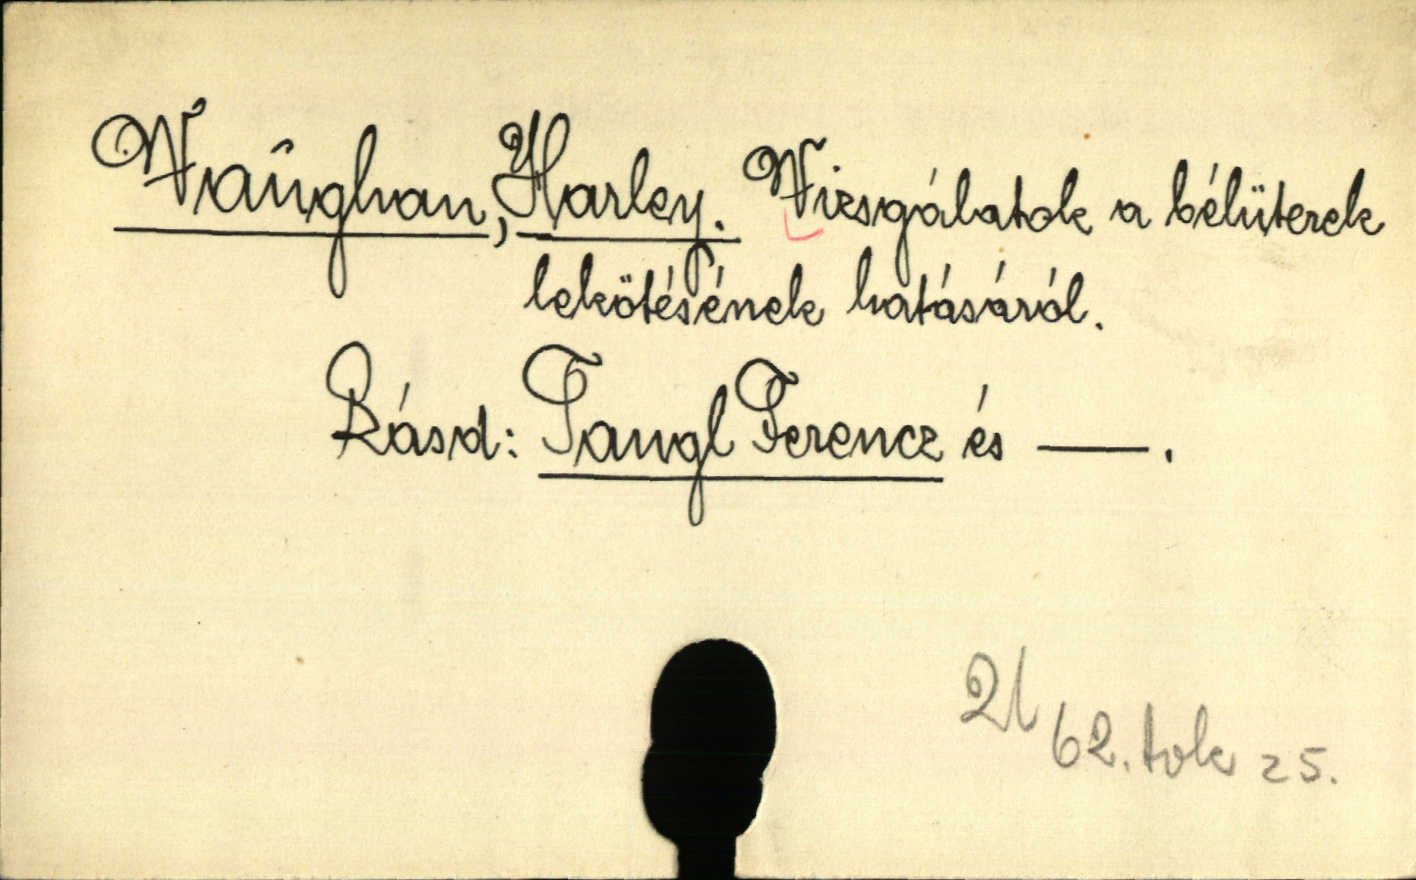 Vaughan, Harley. Vizsgálatok a bélüterek
lekötésének hatásáról.
Lásd: Tangl Ferencz és —.
21
62. tok 25.